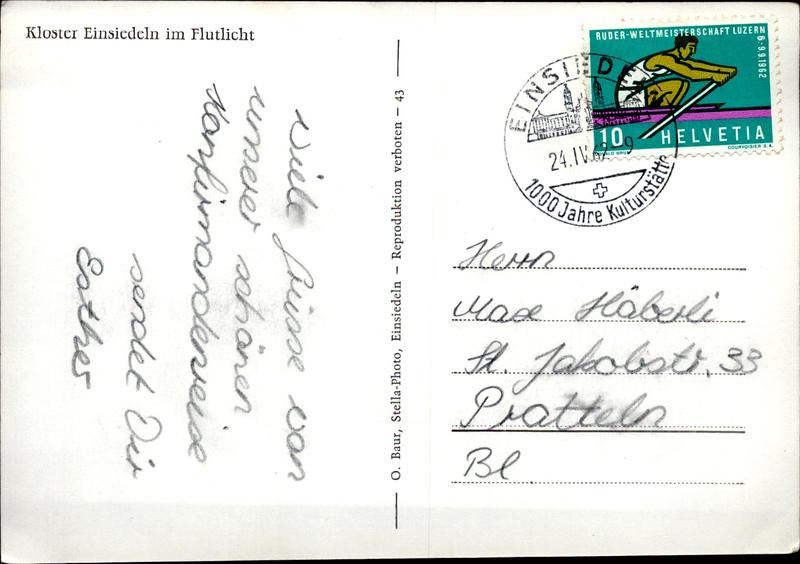 Kloster Einsiedeln im Flutlicht
Viele Grüsse von
unserer schönen
Konfirmandenreise
sendet Dir
Esther
O. Baur, Stella-Photo, Einsiedeln – Reproduktion verboten – 43
RUDER-WELTMEISTERSCHAFT LUZERN
6-9.9.1962
10 HELVETIA
COURVOISIER S.A.
EINSIEDE
24.IV.62-9
1000 Jahre Kulturstätte
Herrn
Max Häberli
St. Jakobstr. 33
Pratteln
BL